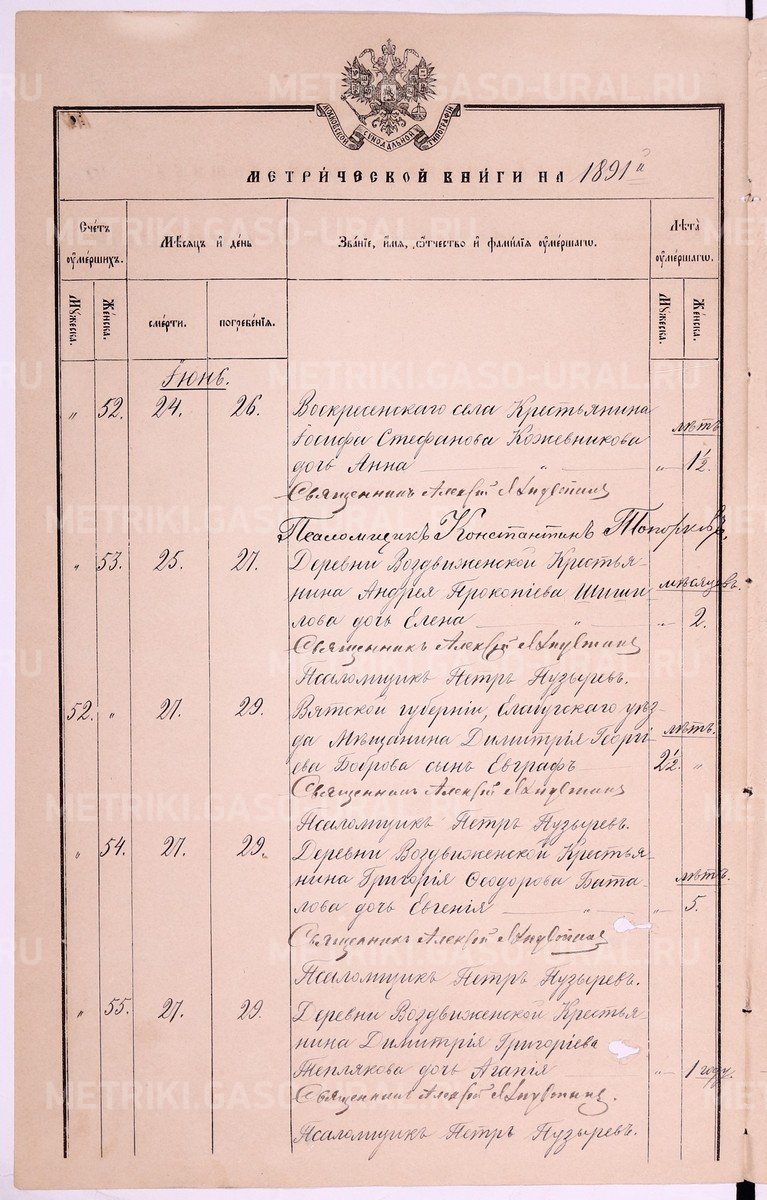 МОСКОВСКОЙ СѴНОДАЛЬНОЙ ТИПОГРАФІИ
МЕТРИ́ЧЕСКОЙ КНИ́ГИ НА 1891 й
Счетъ ᲂумершихъ.
Мѣсяцъ и день
Званіе, имя, ѻтчество и фамилія ᲂумершагѡ.
Лѣта ᲂумершагѡ.
Мужеска.
Женска.
смерти.
погребенія.
Мужеска.
Женска.
Іюнь.
" 52. 24. 26. Воскресенскаго села Крестьянина
Іосифа Стефанова Кожевникова лѣтъ
дочь Анна " " 1½.
Священникъ Алексѣй
Псаломщикъ Константинъ Топорковъ.
" 53. 25. 27. Деревни Воздвиженской Крестья-
нина Андрея Прокопіева Шиши мѣсяцевъ.
лова дочь Елена " " 2.
Священникъ Алексѣй
Псаломщикъ Петръ Пузыревъ.
52. " 27. 29. Вятской губерніи, Елабугскаго уѣз-
да Мѣщанина Димитрія Георгі- лѣтъ.
ева Боброва сынъ Евграфъ 2½. "
Священникъ Алексѣй
Псаломщикъ Петръ Пузыревъ.
" 54. 27. 29. Деревни Воздвиженской Крестья-
нина Григорія Ѳеодорова Бата- лѣтъ.
лова дочь Евгенія " " 5.
Священникъ Алексѣй
Псаломщикъ Петръ Пузыревъ.
" 55. 27. 29. Деревни Воздвиженской Крестья-
нина Димитрія Григоріева
Теплякова дочь Агапія " 1 году.
Священникъ Алексѣй
Псаломщикъ Петръ Пузыревъ.
METRIKI.GASO-URAL.RU